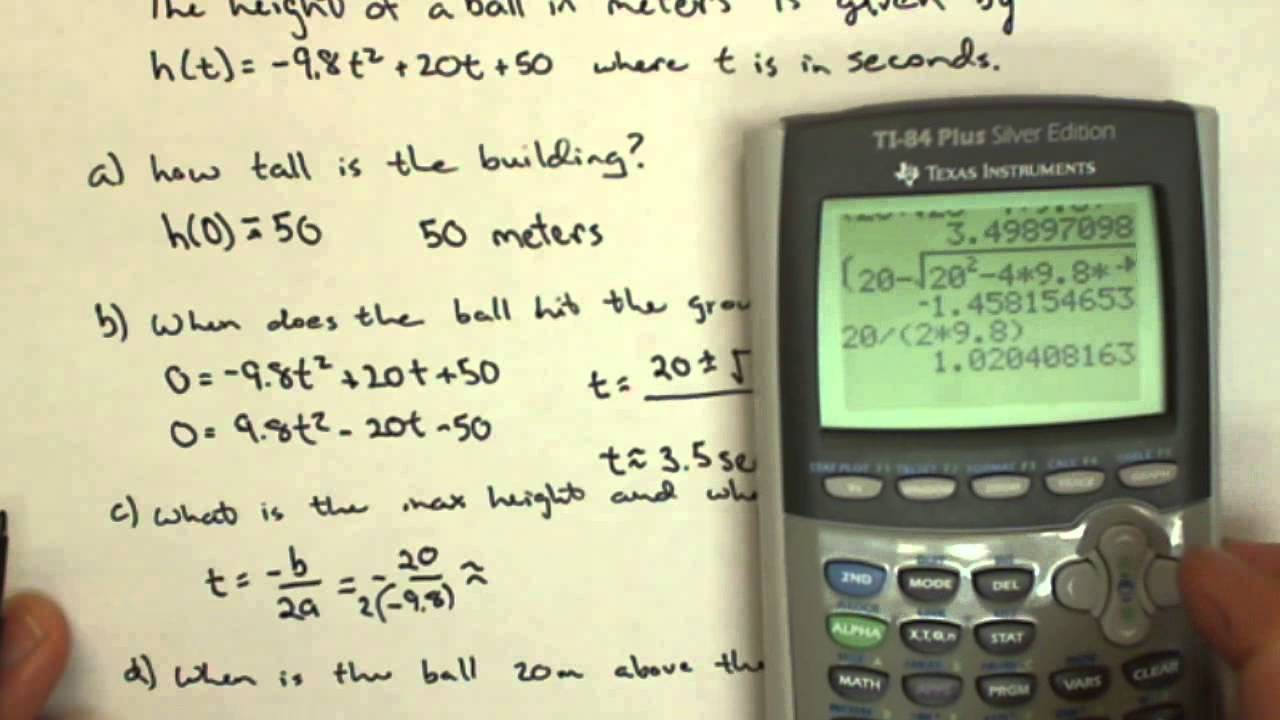 The height of a ball in meters is given by
h(t) = -9.8t² + 20t + 50 where t is in seconds.
a) how tall is the building?
h(0) = 50 50 meters
b) When does the ball hit the
0 = -9.8t² + 20t + 50
0 = 9.8t² - 20t - 50
t = 20 ± √
t ≈ 3.5
c) What is the max height and
t = -b/2a = -20/2(-9.8) ≈
d) When is the ball 20m above the
TI-84 Plus Silver Edition
TEXAS INSTRUMENTS
3.49897098
(20-√20²-4*9.8*
-1.458154653
20/(2*9.8)
1.020408163
2ND MODE DEL
ALPHA X,T,θ,n STAT
MATH APPS PRGM VARS CLEAR